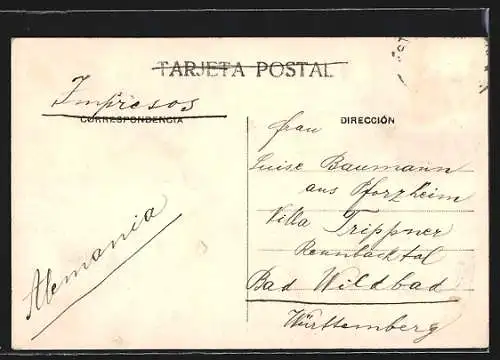 TARJETA POSTAL
Impresos
CORRESPONDENCIA
DIRECCIÓN
Frau
Luise Baumann
aus Pforzheim
Villa Trippner
Rennbachtal
Bad Wildbad
Württemberg
Alemania